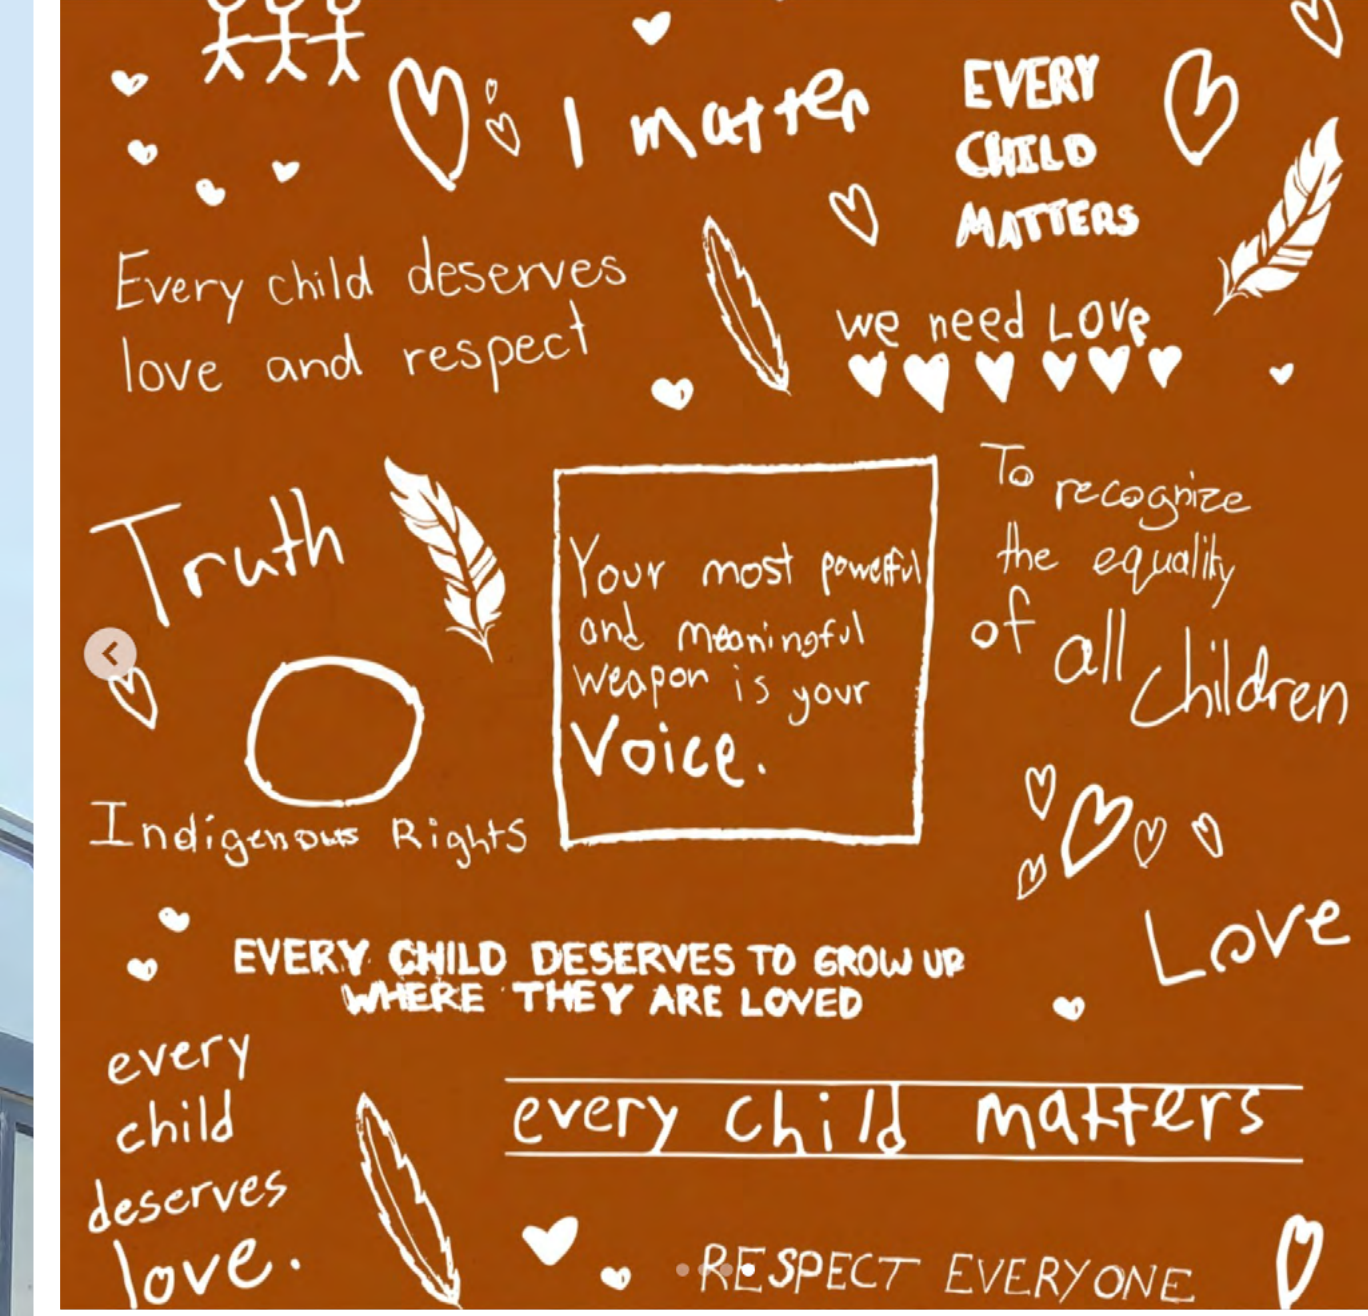 I matter
EVERY
CHILD
MATTERS
Every child deserves
love and respect
we need LOVe
Truth
Your most powerful
and meaningful
weapon is your
Voice.
To recognize
the equality
of all children
Indigenous Rights
Love
EVERY CHILD DESERVES TO GROW UP
WHERE THEY ARE LOVED
every
child
deserves
love.
every child matters
RESPECT EVERYONE